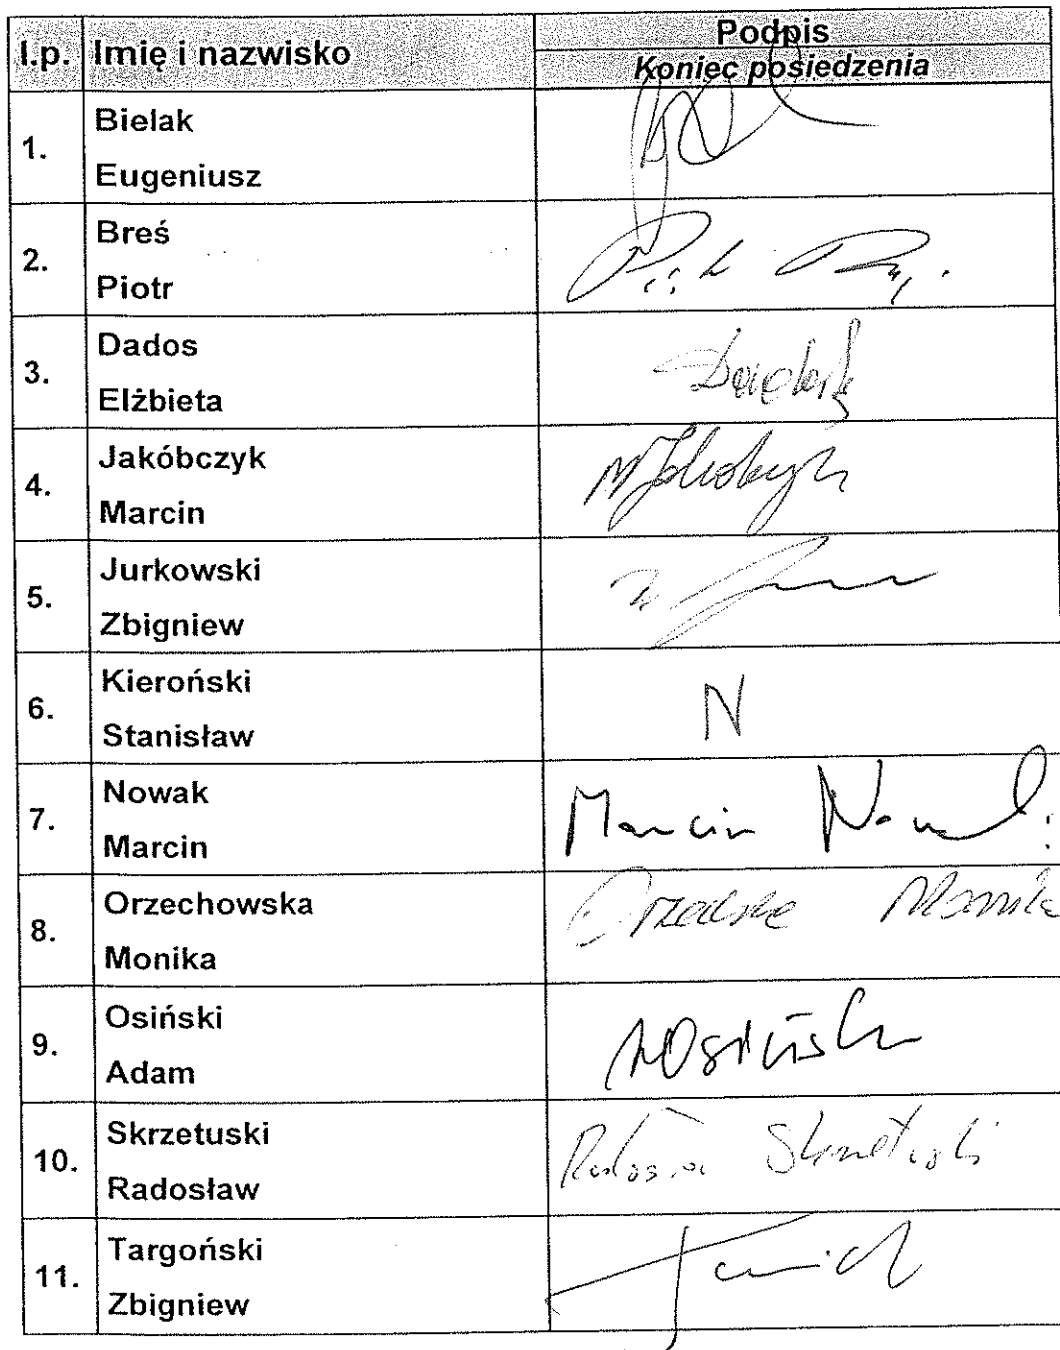 l.p. Imię i nazwisko Podpis
Koniec posiedzenia
1. Bielak
Eugeniusz
2. Breś
Piotr
3. Dados
Elżbieta
4. Jakóbczyk
Marcin
5. Jurkowski
Zbigniew
6. Kieroński
Stanisław
N
7. Nowak
Marcin
Marcin Nowak
8. Orzechowska
Monika
Monika
9. Osiński
Adam
AOsiński
10. Skrzetuski
Radosław
Radosław Skrzetuski
11. Targoński
Zbigniew